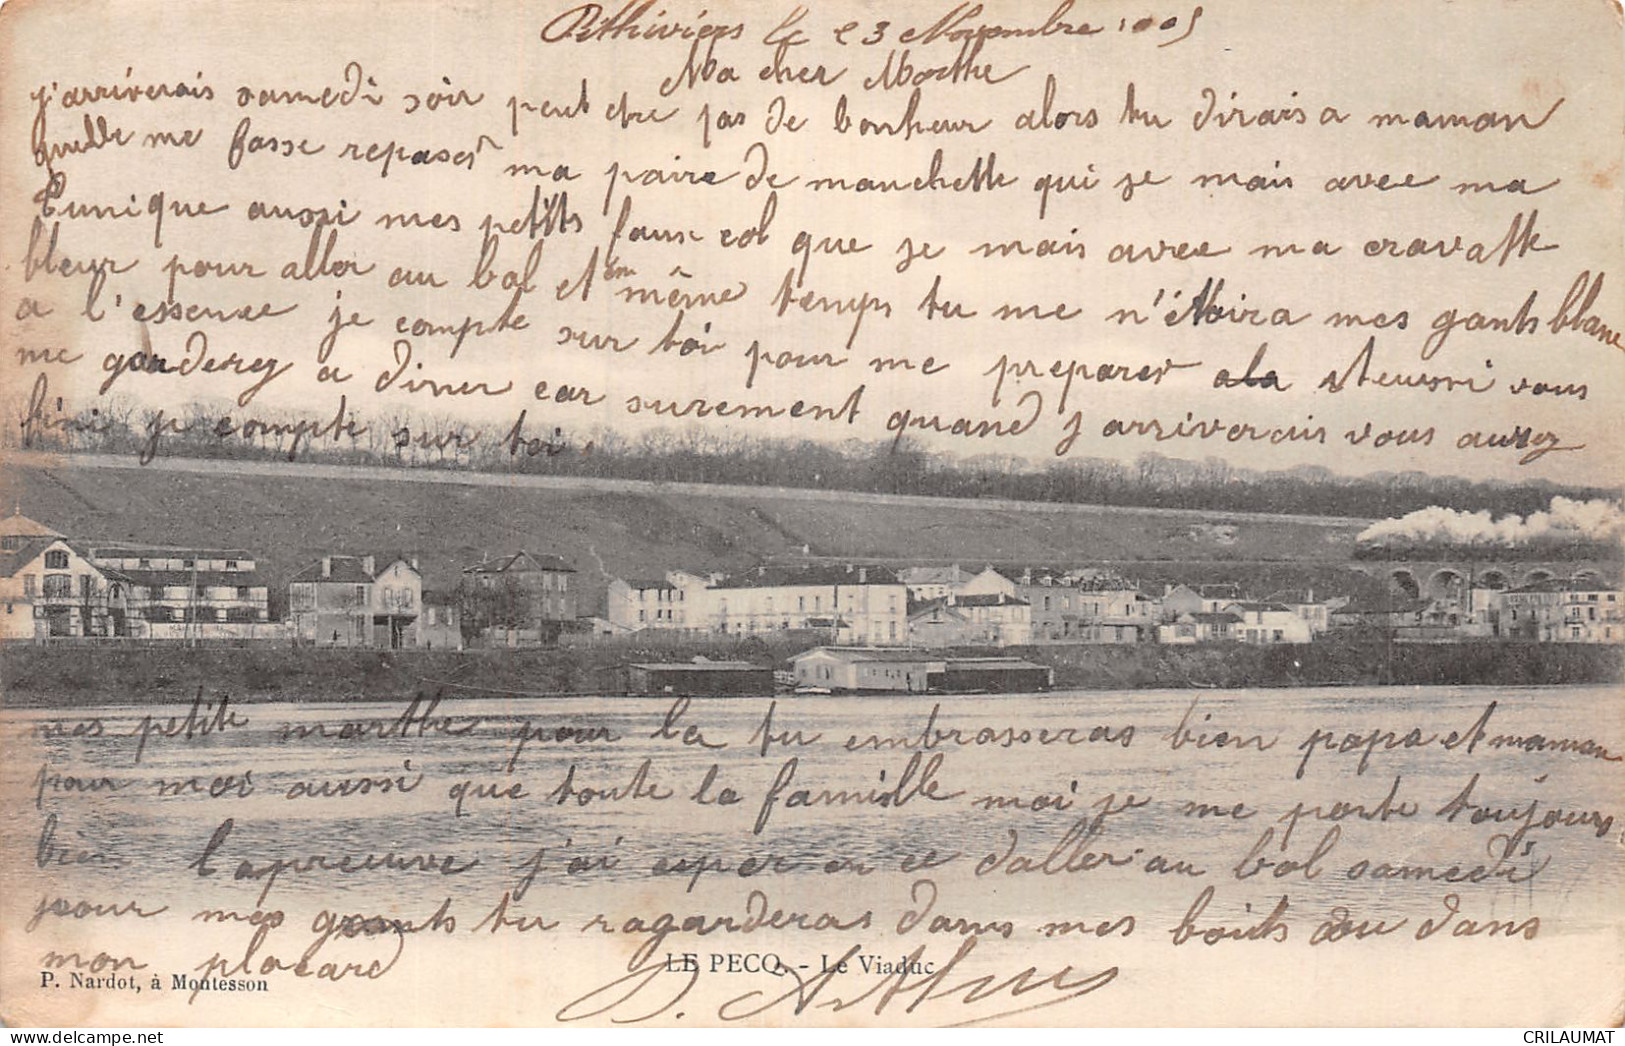 Pithiviers le 23 Novembre 1905
Ma cher Marthe
j'arriverais samedi soir peut etre pas de bonheur alors tu dirais a maman
quelle me fasse repaser ma paire de manchette qui je mais avec ma
tunique aussi mes petits faux col que je mais avec ma cravatte
bleur pour aller au bal et en même temps tu me n'étoira mes gants blanc
a l'essence je compte sur toi pour me preparer ala vous
me garderez a diner car surement quand j'arriverais vous aurez
fini je compte sur toi.
mes petite marthe pour la tu embrasseras bien papa et maman
pour moi aussi que toute la famille moi je me porte toujours
bien lapreuve j'ai esperance daller au bal samedi
pour mes gants tu ragarderas dans mes boits ou dans
mon placard
LE PECQ. - Le Viaduc
P. Nardot, à Montesson
D. Arthur
CRILAUMAT